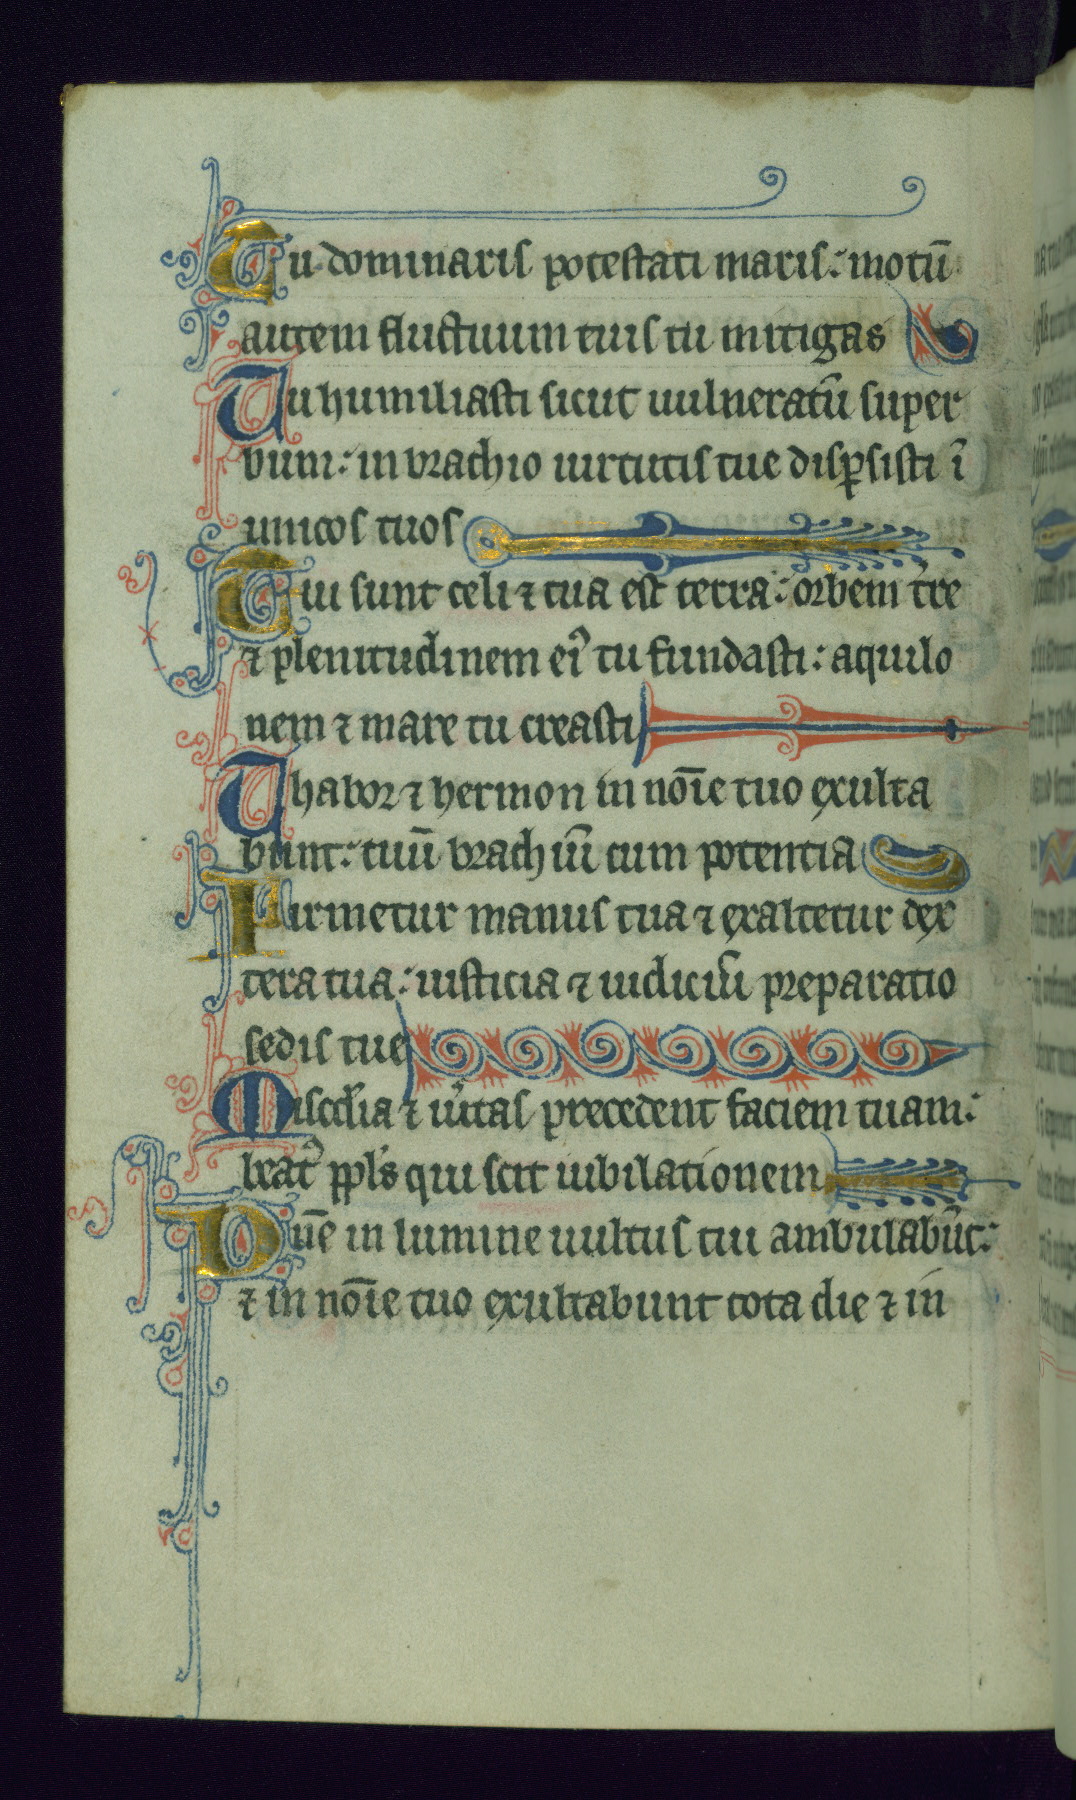 Tu dominaris potestati maris: motū
autem fluctuum tuis tu mitigas
Tu humiliasti sicut uulneratū super
bum: in brachio uirtutis tue disꝑsisti ī
unicos tuos
Tui sunt celi ⁊ tua est terra: orbem tr̄e
⁊ plenitudinem eiꝰ tu fundasti: aquilo
nem ⁊ mare tu creasti
Thabor ⁊ hermon in noīe tuo exulta
bunt: tuū brachiū cum potentia
Firmetur manus tua ⁊ exaltetur dex
tera tua: iusticia ⁊ iudiciū preparatio
sedis tue
Misc̄dia ⁊ ūitas precedent faciem tuam:
beatꝰ ppl̄s qui scit iubilationem
Dn̄e in lumine uultus tui ambulabūt:
⁊ in noīe tuo exultabunt tota die ⁊ in